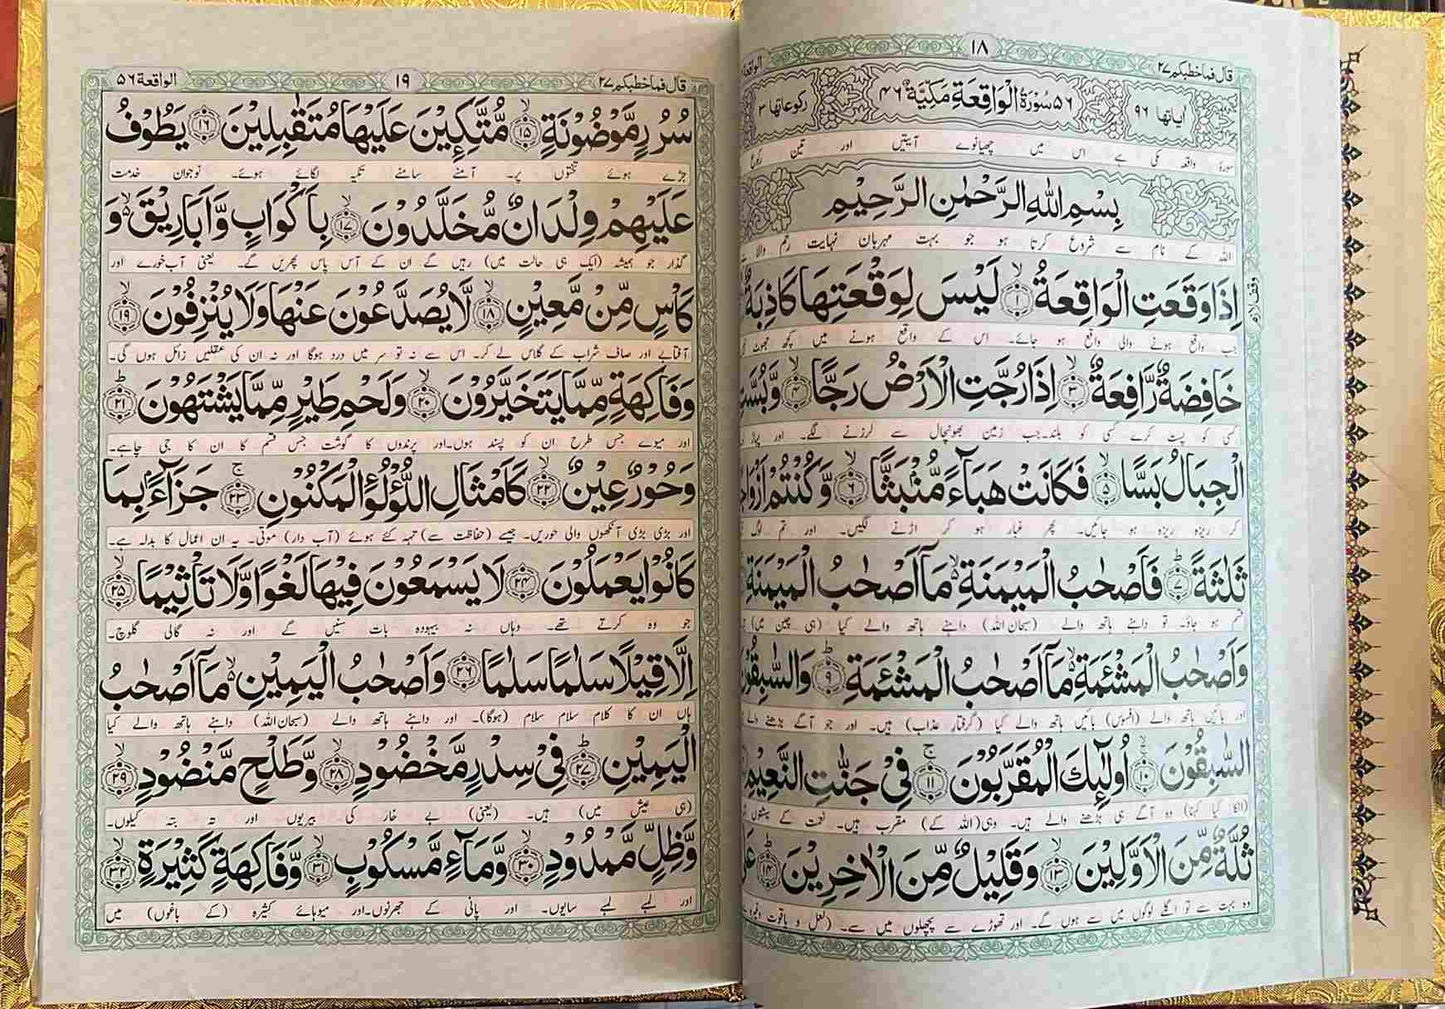 قال فماخطبکم ۲۷
۱۸
الواقعة
اٰیاتها ۹۶
۵۶ سُوْرَةُ الْوَاقِعَةِ مَكِّيَّةٌ ۴۶
رکوعاتها ۳
سورۂ واقعہ مکی ہے اس میں چھیانوے آیتیں اور تین رکوع
بِسْمِ اللهِ الرَّحْمٰنِ الرَّحِيْمِ
اللہ کے نام سے شروع کرتا ہو جو بہت مہربان نہایت رحم والا ہے
اِذَا وَقَعَتِ الْوَاقِعَةُ ۙ﴿۱﴾ لَيْسَ لِوَقْعَتِهَا كَاذِبَةٌ
جب واقع ہونے والی واقع ہو جائے۔ اس کے واقع ہونے میں کچھ جھوٹ
خَافِضَةٌ رَّافِعَةٌ ۙ﴿۳﴾ اِذَا رُجَّتِ الْاَرْضُ رَجًّا ۙ﴿۴﴾ وَّبُسَّتِ
کسی کو پست کرے کسی کو بلند۔جب زمین بھونچال سے لرزنے لگے۔ اور پہاڑ
الْجِبَالُ بَسًّا ۙ﴿۵﴾ فَكَانَتْ هَبَآءً مُّنْۢبَثًّا ۙ﴿۶﴾ وَّكُنْتُمْ اَزْوَاجًا
کر ریزہ ریزہ ہو جائیں۔ پھر غبار ہو کر اڑنے لگیں۔ اور تم لوگ
ثَلٰثَةً ؕ﴿۷﴾ فَاَصْحٰبُ الْمَيْمَنَةِ ۙ۬ مَاۤ اَصْحٰبُ الْمَيْمَنَةِ
قسم ہو جاؤ۔ تو داہنے ہاتھ والے (سبحان اللہ) داہنے ہاتھ والے کیا (ہی چین میں)
وَاَصْحٰبُ الْمَشْـَٔمَةِ ۙ۬ مَاۤ اَصْحٰبُ الْمَشْـَٔمَةِ ؕ﴿۹﴾ وَالسّٰبِقُوْنَ
اور بائیں ہاتھ والے (افسوس) بائیں ہاتھ والے کیا (گرفتار عذاب) ہیں۔ اور جو آگے بڑھنے والے
السّٰبِقُوْنَ ۙ﴿۱۰﴾ اُولٰٓئِكَ الْمُقَرَّبُوْنَ ۚ﴿۱۱﴾ فِيْ جَنّٰتِ النَّعِيْمِ
(انکا کیا کہنا) وہ آگے ہی بڑھنے والے ہیں۔ وہی (اللہ کے) مقرب ہیں۔ نعمت کے بہشتوں
ثُلَّةٌ مِّنَ الْاَوَّلِيْنَ ۙ﴿۱۳﴾ وَقَلِيْلٌ مِّنَ الْاٰخِرِيْنَ ؕ﴿۱۴﴾
وہ بہت سے تو اگلے لوگوں میں سے ہوں گے۔ اور تھوڑے سے پچھلوں میں سے۔ (لعل و یاقوت وغیرہ
قال فماخطبکم ۲۷
۱۹
الواقعة ۵۶
سُرُرٍ مَّوْضُوْنَةٍ ۙ﴿۱۵﴾ مُّتَّكِـِٕيْنَ عَلَيْهَا مُتَقٰبِلِيْنَ ﴿۱۶﴾ يَطُوْفُ
جڑے ہوئے تختوں پر۔ آمنے سامنے تکیہ لگائے ہوئے۔ نوجوان خدمت
عَلَيْهِمْ وِلْدَانٌ مُّخَلَّدُوْنَ ۙ﴿۱۷﴾ بِاَكْوَابٍ وَّاَبَارِيْقَ ۙ۬ وَ
گذار جو ہمیشہ (ایک ہی حالت میں) رہیں گے ان کے آس پاس پھریں گے۔ یعنی آب خورے اور
كَاْسٍ مِّنْ مَّعِيْنٍ ۙ﴿۱۸﴾ لَّا يُصَدَّعُوْنَ عَنْهَا وَلَا يُنْزِفُوْنَ ۙ﴿۱۹﴾
آفتابے اور صاف شراب کے گلاس لے کر۔ اس سے نہ تو سر میں درد ہوگا اور نہ ان کی عقلیں زائل ہوں گی۔
وَفَاكِهَةٍ مِّمَّا يَتَخَيَّرُوْنَ ۙ﴿۲۰﴾ وَلَحْمِ طَيْرٍ مِّمَّا يَشْتَهُوْنَ ؕ﴿۲۱﴾
اور میوے جس طرح ان کو پسند ہوں۔اور پرندوں کا گوشت جس قسم کا ان کا جی چاہے۔
وَحُوْرٌ عِيْنٌ ۙ﴿۲۲﴾ كَاَمْثَالِ اللُّؤْلُؤِ الْمَكْنُوْنِ ۚ﴿۲۳﴾ جَزَآءًۢ بِمَا
اور بڑی بڑی آنکھوں والی حوریں۔ جیسے (حفاظت سے) تہہ کئے ہوئے (آب دار) موتی۔ یہ ان اعمال کا بدلہ ہے۔
كَانُوْا يَعْمَلُوْنَ ﴿۲۴﴾ لَا يَسْمَعُوْنَ فِيْهَا لَغْوًا وَّلَا تَاْثِيْمًا ۙ﴿۲۵﴾
جو وہ کرتے تھے۔ وہاں نہ بیہودہ بات سنیں گے اور نہ گالی گلوچ۔
اِلَّا قِيْلًا سَلٰمًا سَلٰمًا ﴿۲۶﴾ وَاَصْحٰبُ الْيَمِيْنِ ۙ۬ مَاۤ اَصْحٰبُ
ہاں ان کا کلام سلام سلام (ہوگا)۔ اور داہنے ہاتھ والے (سبحان اللہ) داہنے ہاتھ والے کیا
الْيَمِيْنِ ؕ﴿۲۷﴾ فِيْ سِدْرٍ مَّخْضُوْدٍ ۙ﴿۲۸﴾ وَّطَلْحٍ مَّنْضُوْدٍ ۙ﴿۲۹﴾
(ہی عیش میں) ہیں۔ (یعنی) بے خار کی بیریوں اور تہ بتہ کیلوں۔
وَّظِلٍّ مَّمْدُوْدٍ ۙ﴿۳۰﴾ وَّمَآءٍ مَّسْكُوْبٍ ۙ﴿۳۱﴾ وَّفَاكِهَةٍ كَثِيْرَةٍ ۙ﴿۳۲﴾
اور لمبے لمبے سایوں۔ اور پانی کے جھرنوں۔اور میوہائے کثیرہ (کے باغوں) میں